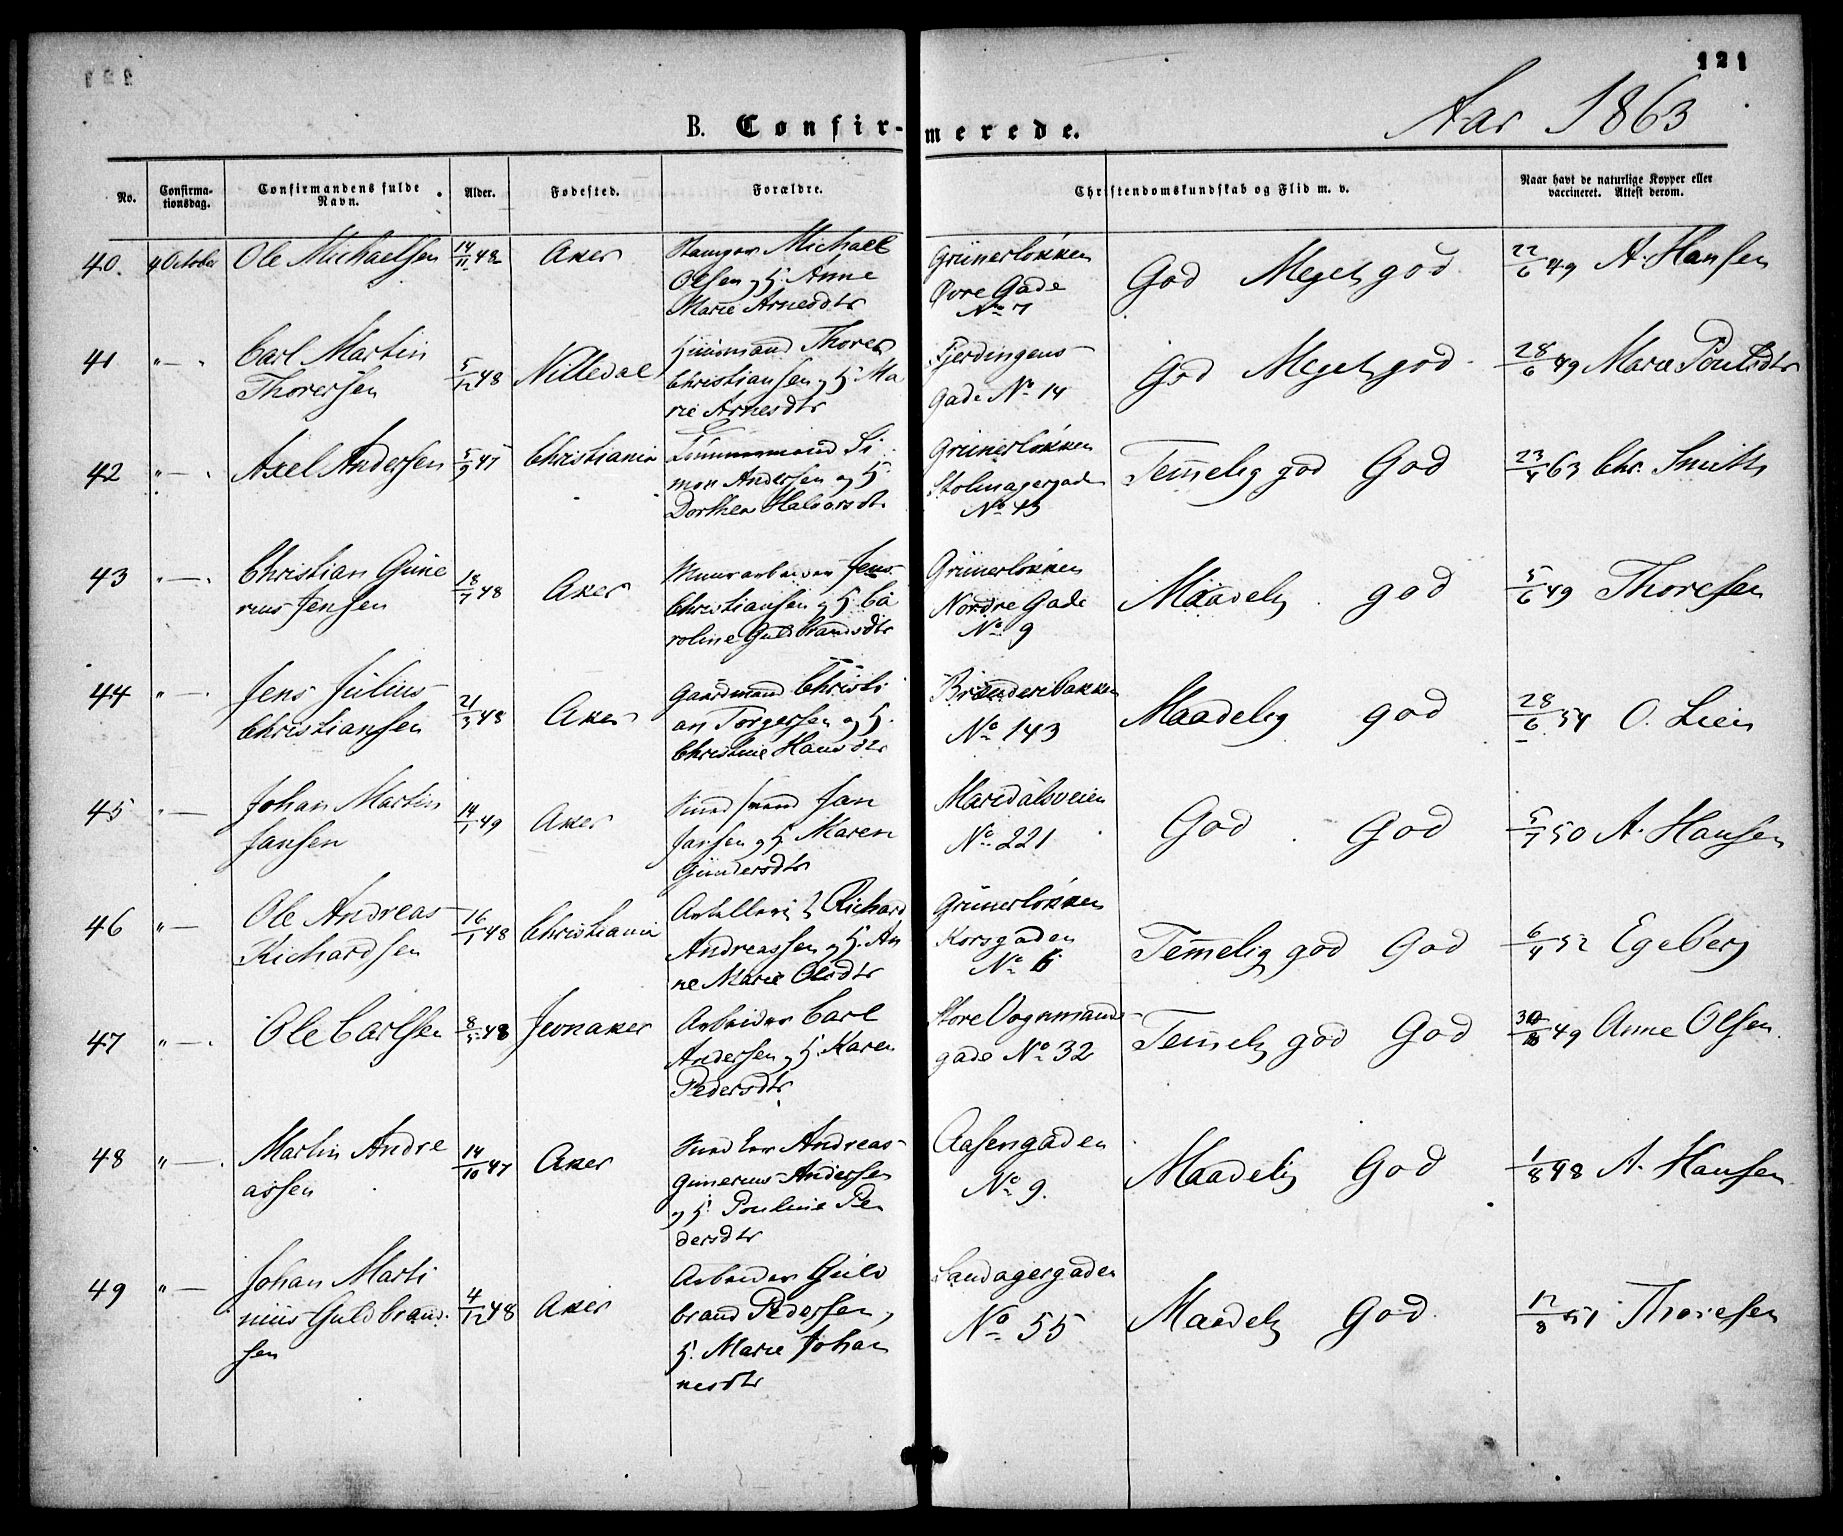 121
B. Confirmerede.
Aar 1863
No.
Confirmationsdag.
Confirmandens fulde Navn.
Alder.
Fødested.
Forældre.
Christendomskundskab og Flid m. v.
Naar havt de naturlige Kopper eller vaccineret. Attest derom.
40. 4 October Ole Michaelsen 14/11 48 Aker Michael Grünerløkken God Meget god 22/6 49 A. Hansen
Olsen og H. Anne Øvre Gade
Marie Arnesdtr No 7
41 " — " Carl Martin 5/12 48 Nittedal Huusmand Thorer Fjerdingens- God Meget god 28/6 49 Maria Poulsdtr
Thorersen Christiansen og H. Ma Gade No 14
rie Arnesdtr
42 " — " Axel Andersen 5/9 47 Christiania Si Grünerløkken Temmelig god God 23/4 63 Chr. Smith
mon Andersen og H. Stolmagergaden
Dorthea Halvorsdtr No 43
43 " — " Christian Gune 18/7 48 Aker Muurarbeider Jens Grünerløkken Maadelig god 5/6 49 Thoresen
rius Jensen Christiansen og H. Ca Nordre Gade
roline Guldbrandsdtr No 9
44 " — " Jens Julius 21/3 48 Aker Gaardmand Christi Brænderibakken Maadelig god 28/6 54 O. Lien
Christiansen an Torgersen og H. No 143
Christine Hansdtr
45 " — Johan Martin 14/1 49 Aker Jan Maridalsveien God God 5/7 50 A. Hansen
Jansen Jansen og H. Maren No 221
Gundersdtr
46 " — Ole Andreas 16/1 48 Christiania Richard Grünerløkken Temmelig god God 6/4 52 Egeberg
Richardsen Andreassen og H. An Korsgaden
ne Marie Olsdtr No 6
47 " — " Ole Carlsen 8/5 48 Jevnaker Arbeider Carl Store Vognmands- Temmelig god God 30/8 49 Anne Olsen
Andersen og H. Karen gade No 32
Pedersdtr
48 " — " Martin Andre 14/10 47 Aker Andreas Aasengaden Maadelig God 1/8 48 A. Hansen
assen Gunerius Andersen No 9.
og H. Pouline Pe
dersdtr
49 " — Johan Marti 4/12 48 Aker Arbeider Guld Sandagergaden Maadelig God 12/8 51 Thoresen
nius Guldbrand- brand Pedersen, No 55
sen H. Marie Johan
nesdtr